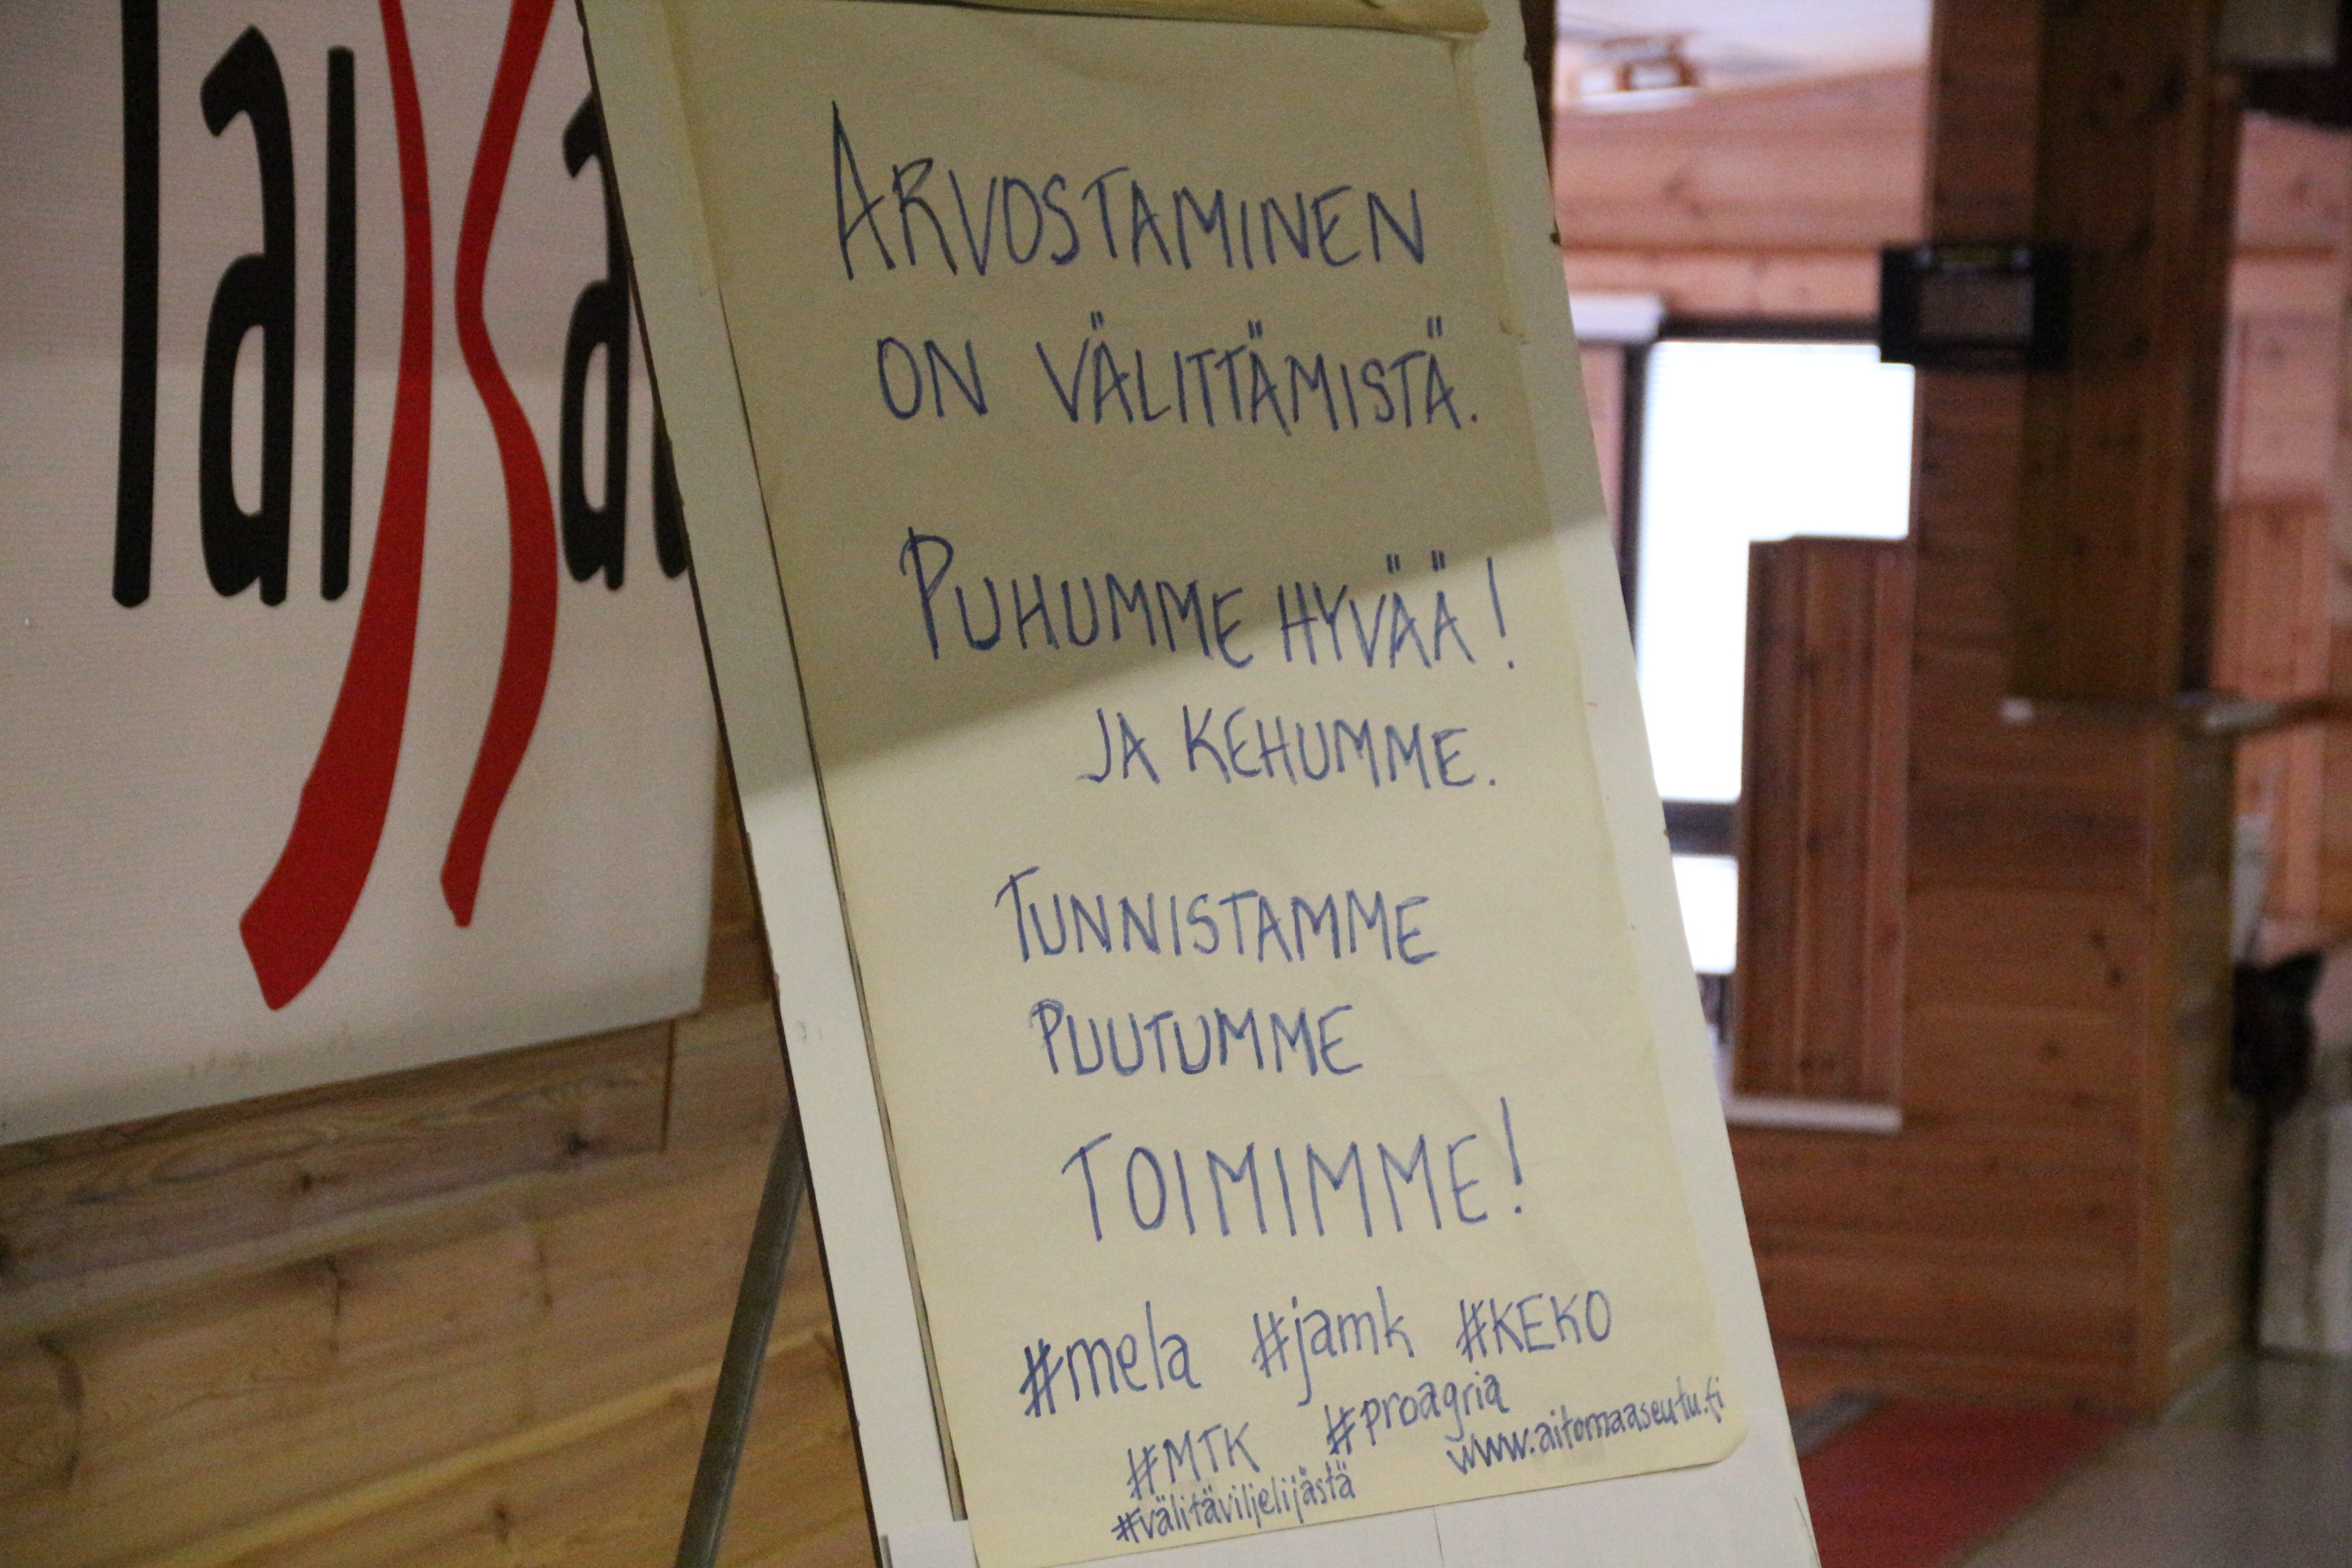 ARVOSTAMINEN
ON VÄLITTÄMISTÄ.
PUHUMME HYVÄÄ!
JA KEHUMME.
TUNNISTAMME
PUUTUMME
TOIMIMME!
#mela #jamk #KEKO
#MTK #proagria
#välitäviljelijästä www.aitomaaseutu.fi